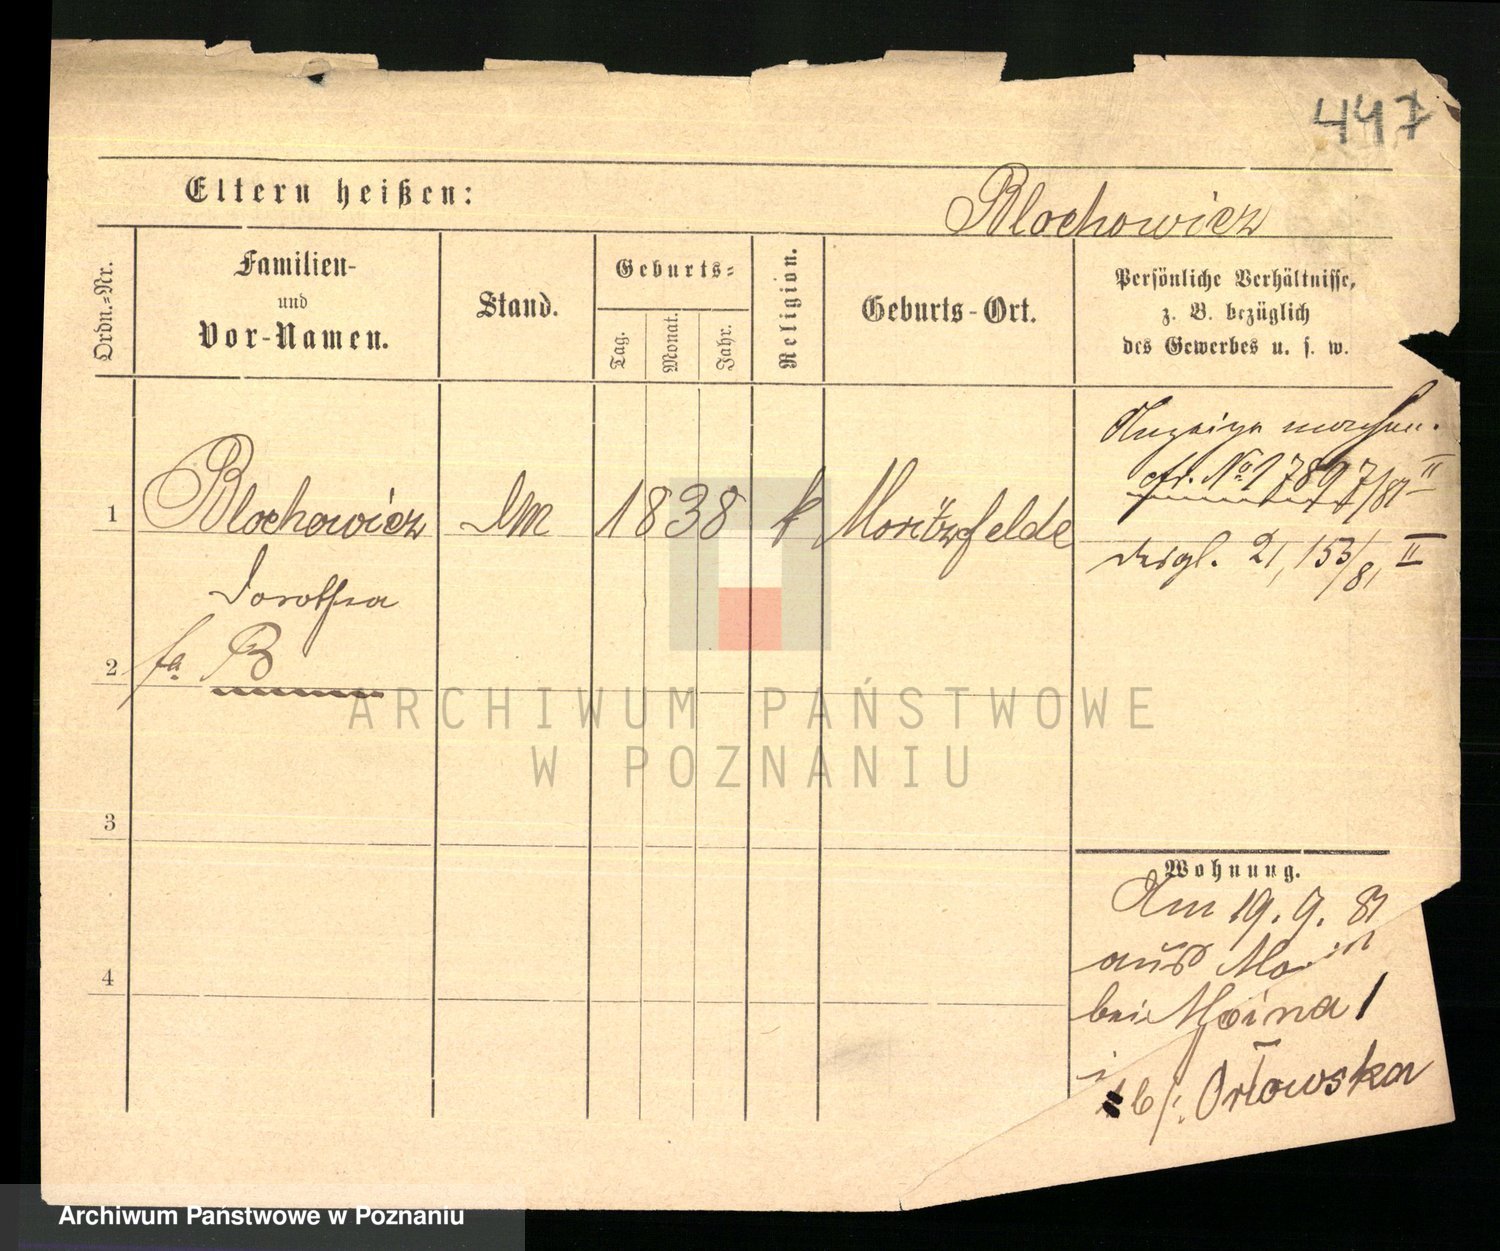 447
Eltern heißen:
Blochowicz
Ordn.-Nr.
Familien-
und
Vor-Namen.
Stand.
Geburts-
Tag.
Monat.
Jahr.
Religion.
Geburts-Ort.
Persönliche Verhältnisse,
z. B. bezüglich
des Gewerbes u. s. w.
1
Blochowicz
Dorothea
1838
k
Moritzfelde
Anzeige machen.
cfr. No 17897/81 II
desgl. 21,153/81, II
2
B
3
4
Wohnung.
Am 19. 9. 81
aus
bei
b/: Orłowska
ARCHIWUM PAŃSTWOWE
W POZNANIU
Archiwum Państwowe w Poznaniu